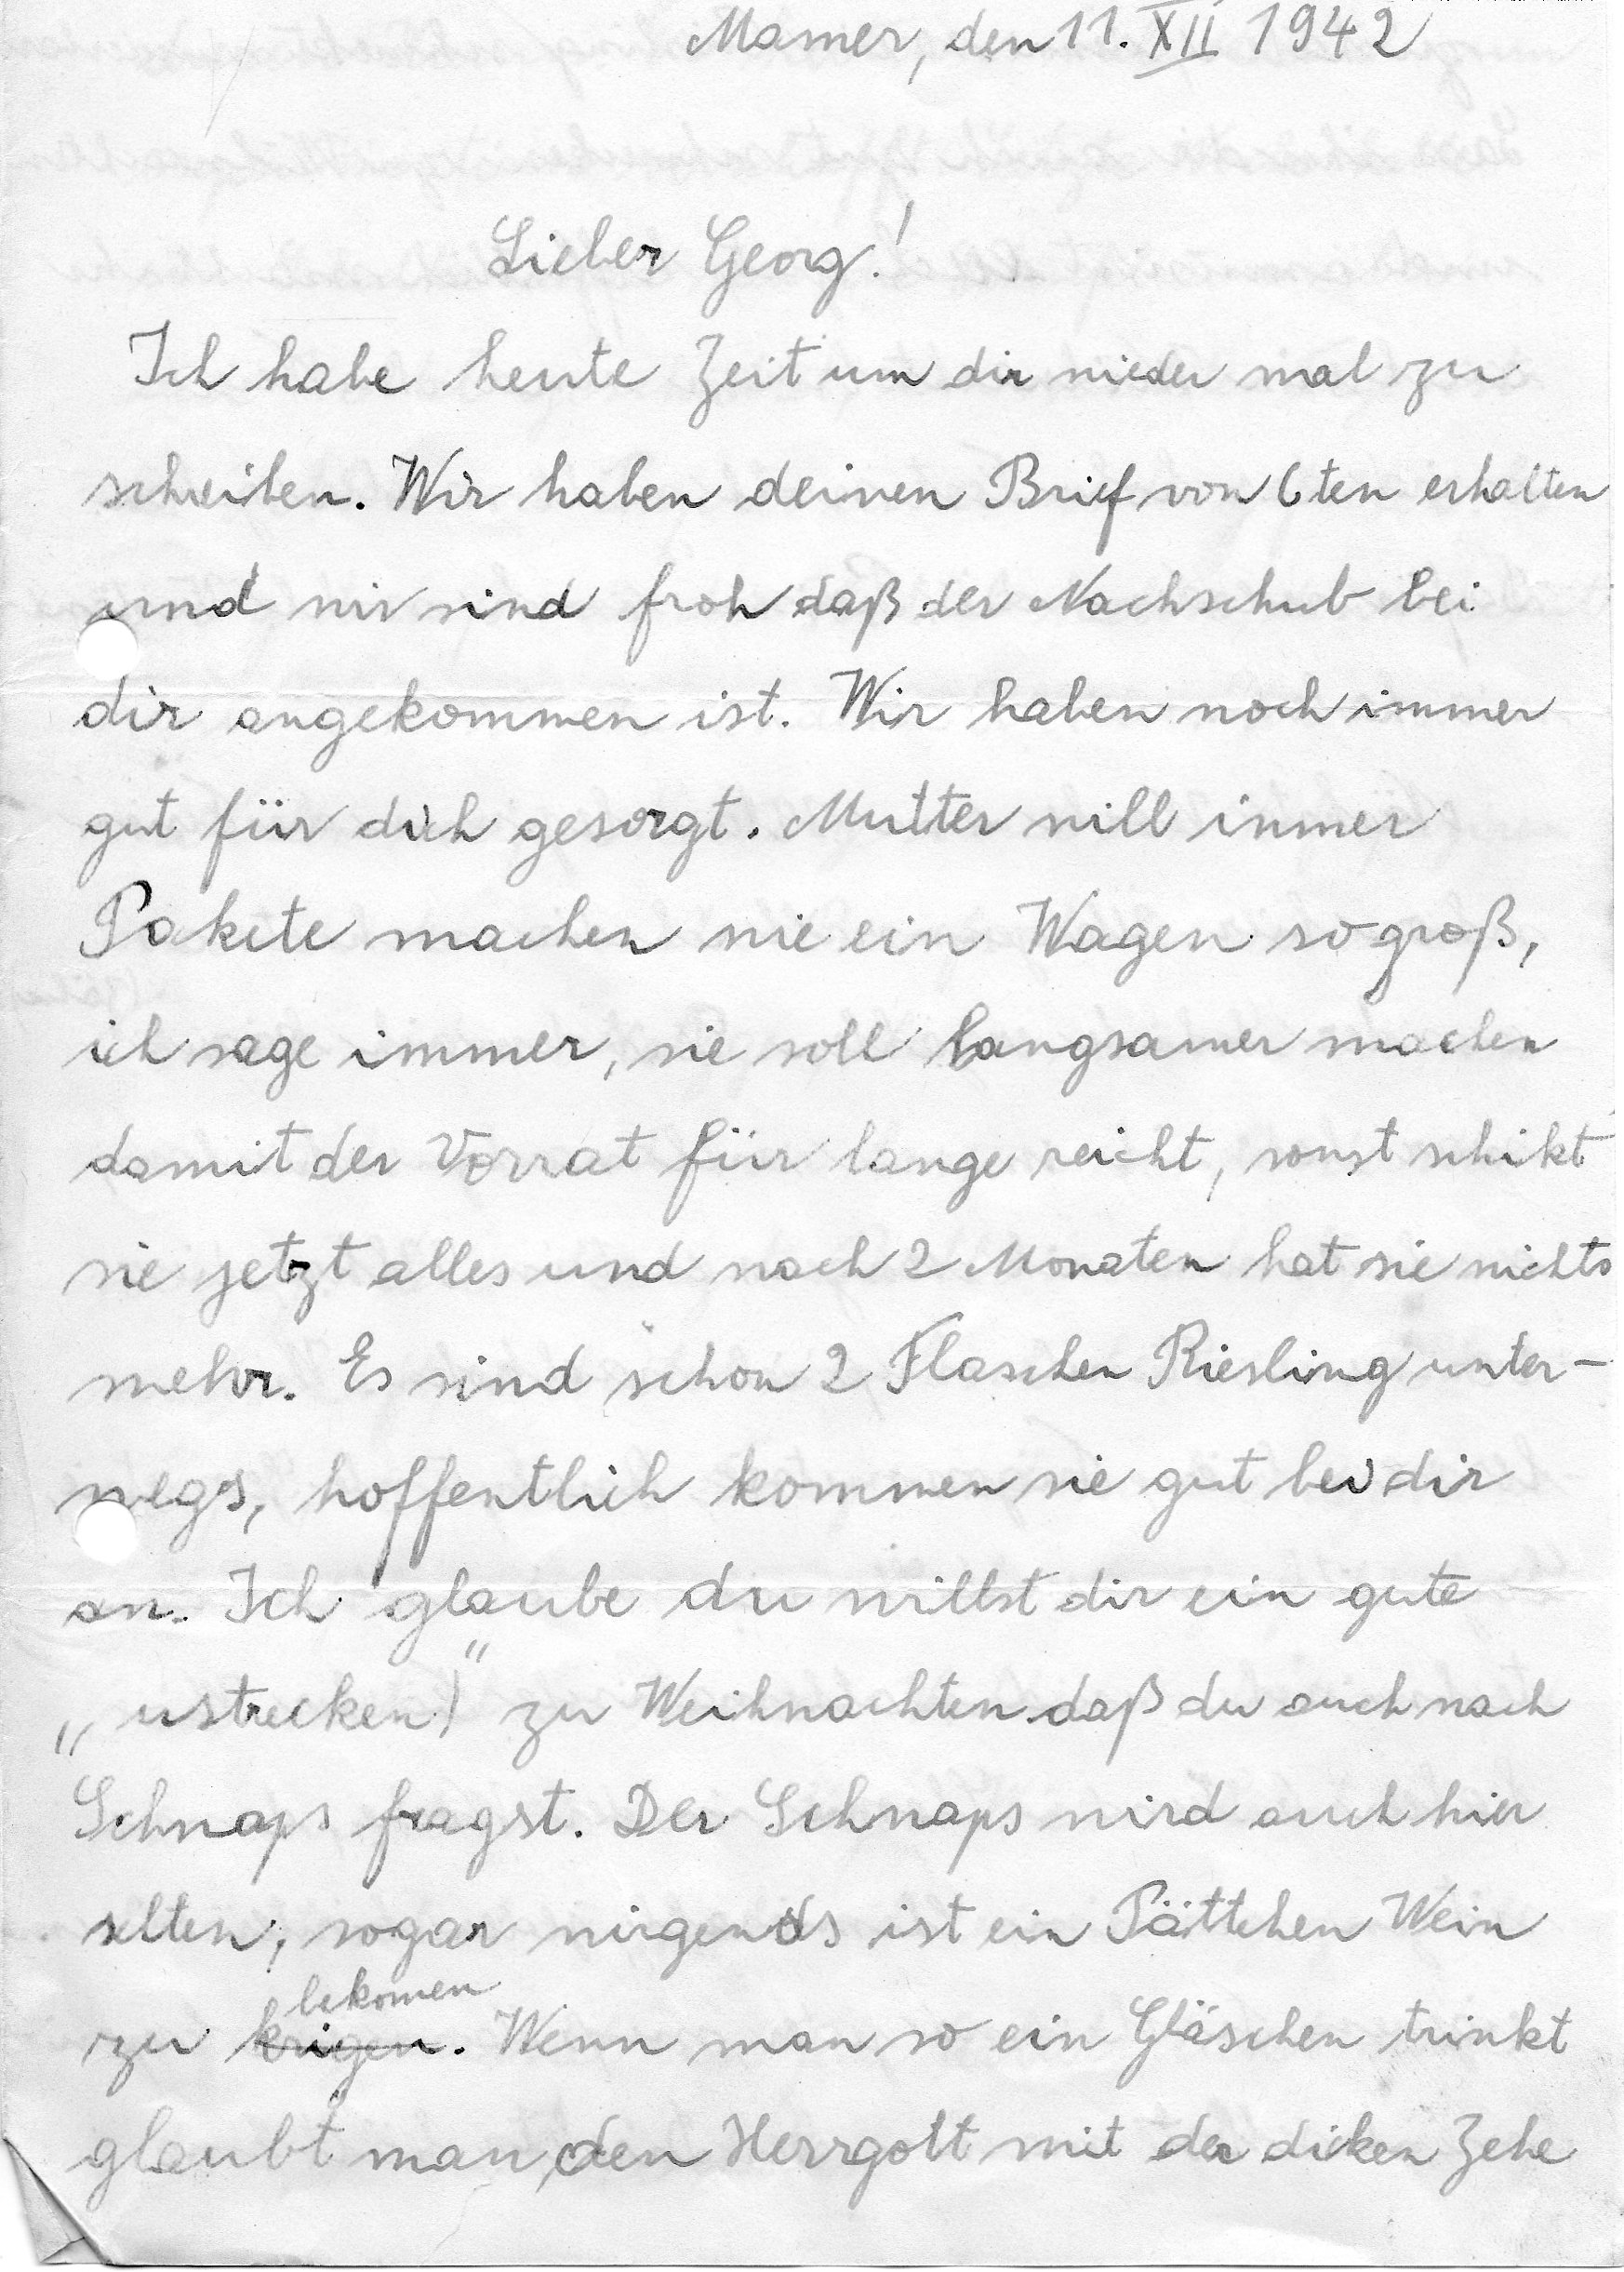 Mamer, den 11. XII 1942
Lieber Georg!
Ich habe heute Zeit um dir wieder mal zu
schreiben. Wir haben deinen Brief von 6ten erhalten
und wir sind froh daß der Nachschub bei
dir angekommen ist. Wir haben noch immer
gut für dich gesorgt. Mutter will immer
Pakete machen wie ein Wagen so groß,
ich sage immer, sie soll langsamer machen
damit der Vorrat für lange reicht, sonst schikt
sie jetzt alles und nach 2 Monaten hat sie nichts
mehr. Es sind schon 2 Flaschen Riesling unter-
wegs, hoffentlich kommen sie gut bei dir
an. Ich glaube du willst dir ein gute
„ustrecken" zu Weihnachten daß du auch nach
Schnaps fragst. Der Schnaps wird auch hier
selten, sogar nirgends ist ein Pättchen Wein
bekomen
zu krigen. Wenn man so ein Gläschen trinkt
glaubt man, den Herrgott mit der dicken Zehe